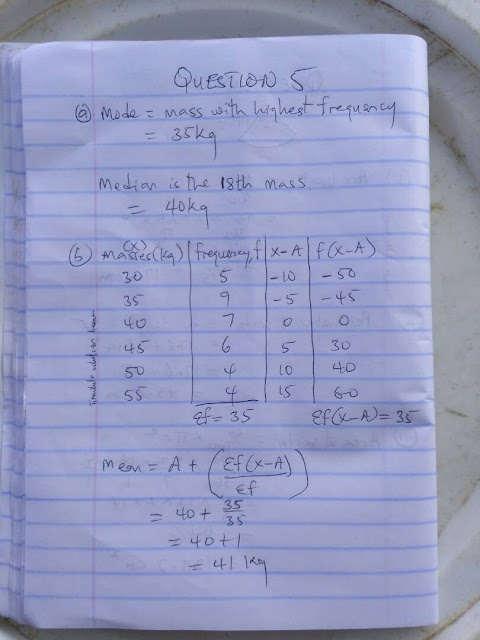 QUESTION 5
(a) Mode = mass with highest frequency
= 35kg
Median is the 18th mass
= 40kg
(b) masses(kg) (x) frequency, f x-A f(x-A)
30 5 -10 -50
35 9 -5 -45
40 7 0 0
45 6 5 30
50 4 10 40
55 4 15 60
Σf = 35 Σf(x-A) = 35
Mean = A + (Σf(x-A)/Σf)
= 40 + 35/35
= 40 + 1
= 41 kg